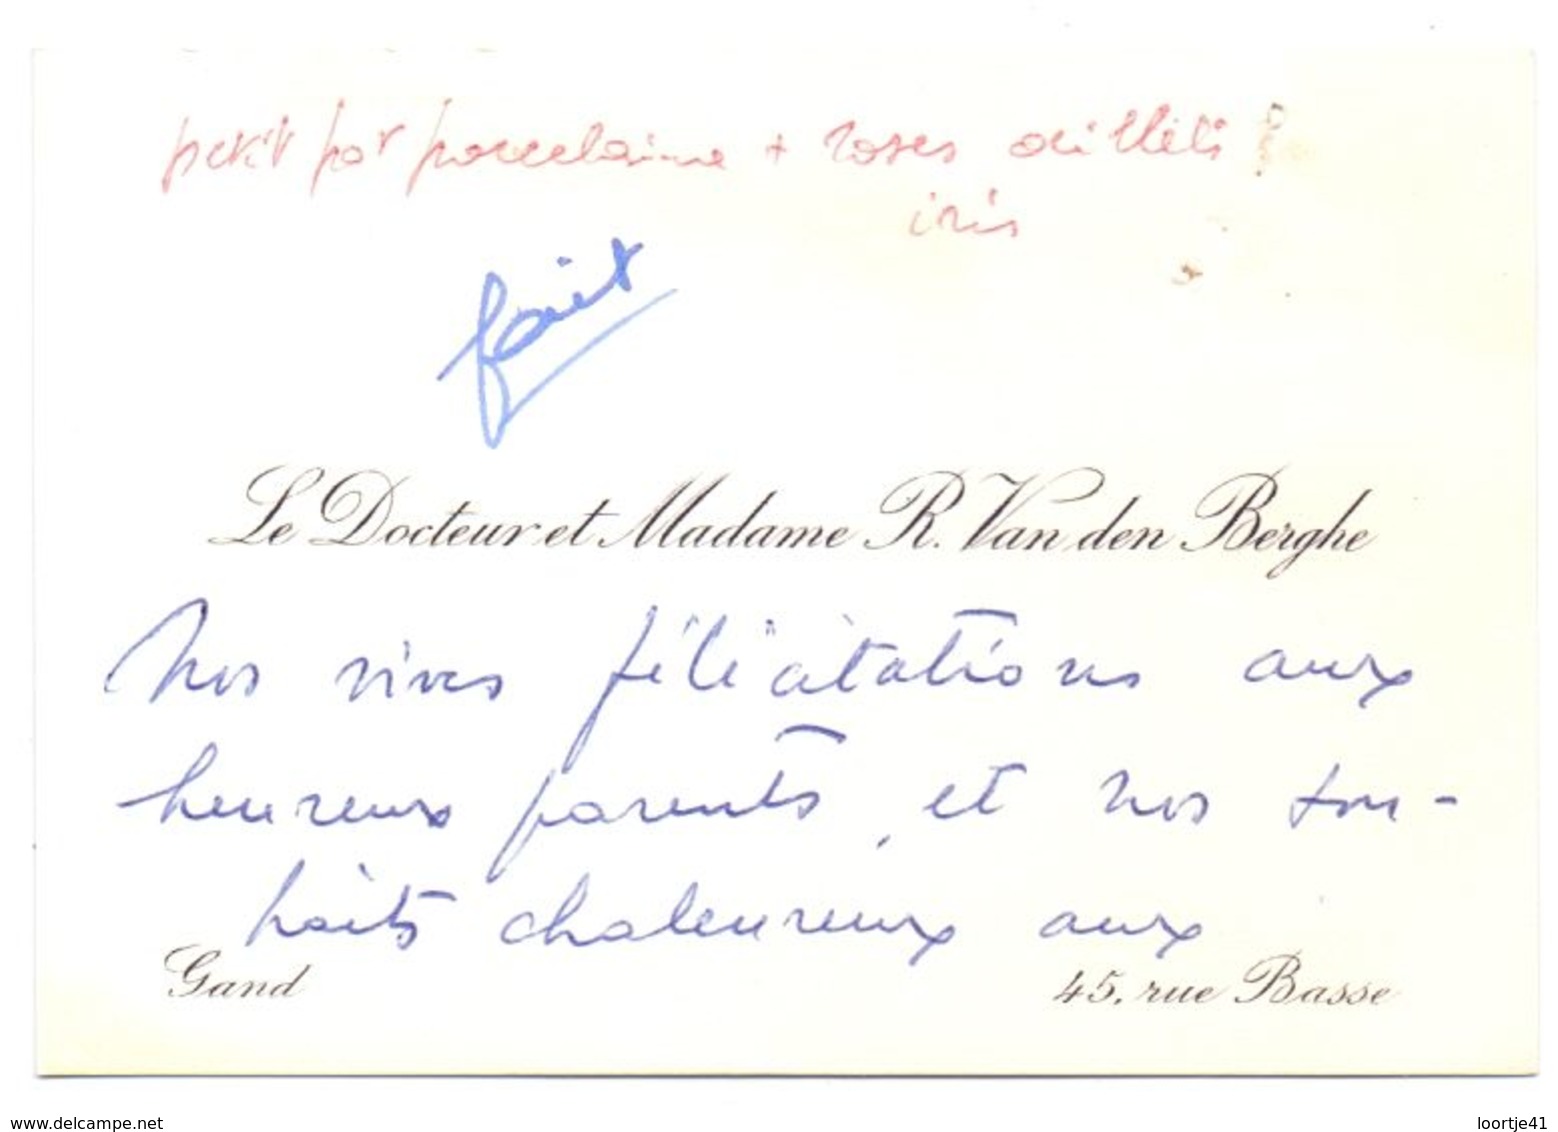 petit pot porcelaine + roses œillets
iris
fait
Le Docteur et Madame R. Van den Berghe
Nos vives félicitations aux
heureux parents, et nos sou-
haits chaleureux aux
Gand
45, rue Basse
www.delcampe.net
loortje41